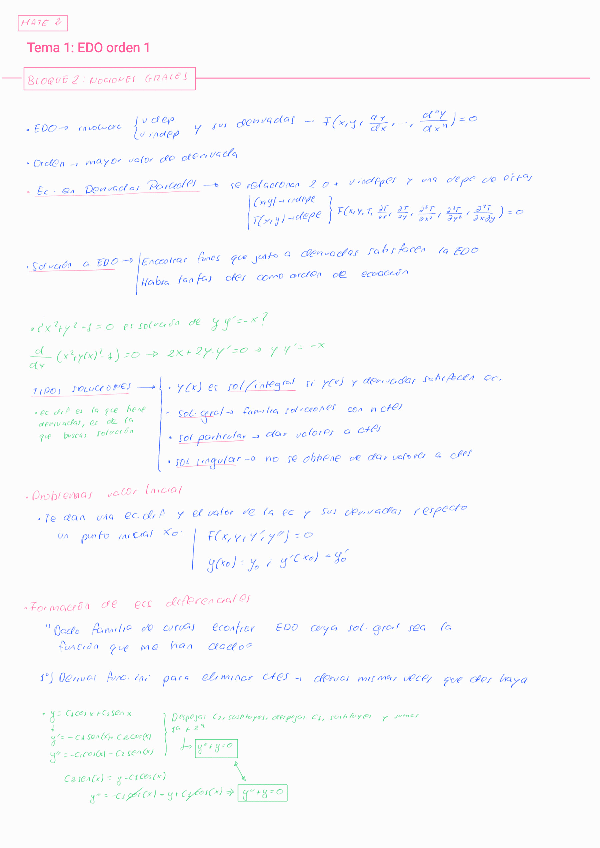 MATE 2
Tema 1: EDO orden 1
BLOQUE 2 NOCIONES GRALES
• EDO → involucre { v dep y sus derivadas → F(x,y, dy/dx, ..., dⁿy/dxⁿ) = 0
v indep
• Orden → mayor valor de derivada
• Ec. en Derivadas Parciales → se relacionan 2 o + v indepes y una depe de estas
(x,y) → indepe
T(x,y) → depe } F(x,y,T, ∂T/∂x, ∂T/∂y, ∂²T/∂x², ∂²T/∂y², ∂²T/∂x∂y) = 0
• Solución a EDO → Encontrar funcs que junto a derivadas satisfacen la EDO
Habra tantas ctes como orden de ecuación
• ¿x²+y²-1=0 es solución de y y'=-x?
d/dx (x²+y(x)²-1)=0 → 2x+2y·y'=0 → y y'=-x
TIPOS SOLUCIONES → • y(x) es sol/integral si y(x) y derivadas satisfacen ec.
• ec dif es la que tiene
derivadas, es de la
que buscas solución
• sol. gral → familia soluciones con n ctes
• sol particular → dar valores a ctes
• sol singular → no se obtiene de dar valores a ctes
• Problemas valor inicial
• Te dan una ec.dif y el valor de la ec y sus derivadas respecto
un punto inicial x₀: F(x,y,y',y'')=0
y(x₀)=y₀ ; y'(x₀)=y₀'
• Formación de ecs diferenciales
"Dado familia de curvas econtrar EDO cuya sol. gral sea la
función que me han dado"
1º) Derivas func. ini para eliminar ctes → derivas mismas veces que ctes haya
• y = C₁cosx+C₂senx
y' = -C₁sen(x)+C₂cos(x)
y'' = -C₁cos(x)-C₂sen(x)
Despejas C₁, sustituyes, despejas C₂, sustituyes y sumas
y''+y=0
C₂sen(x) = y-C₁cos(x)
y'' = -C₁cos(x)-y+C₁cos(x) → y''+y=0